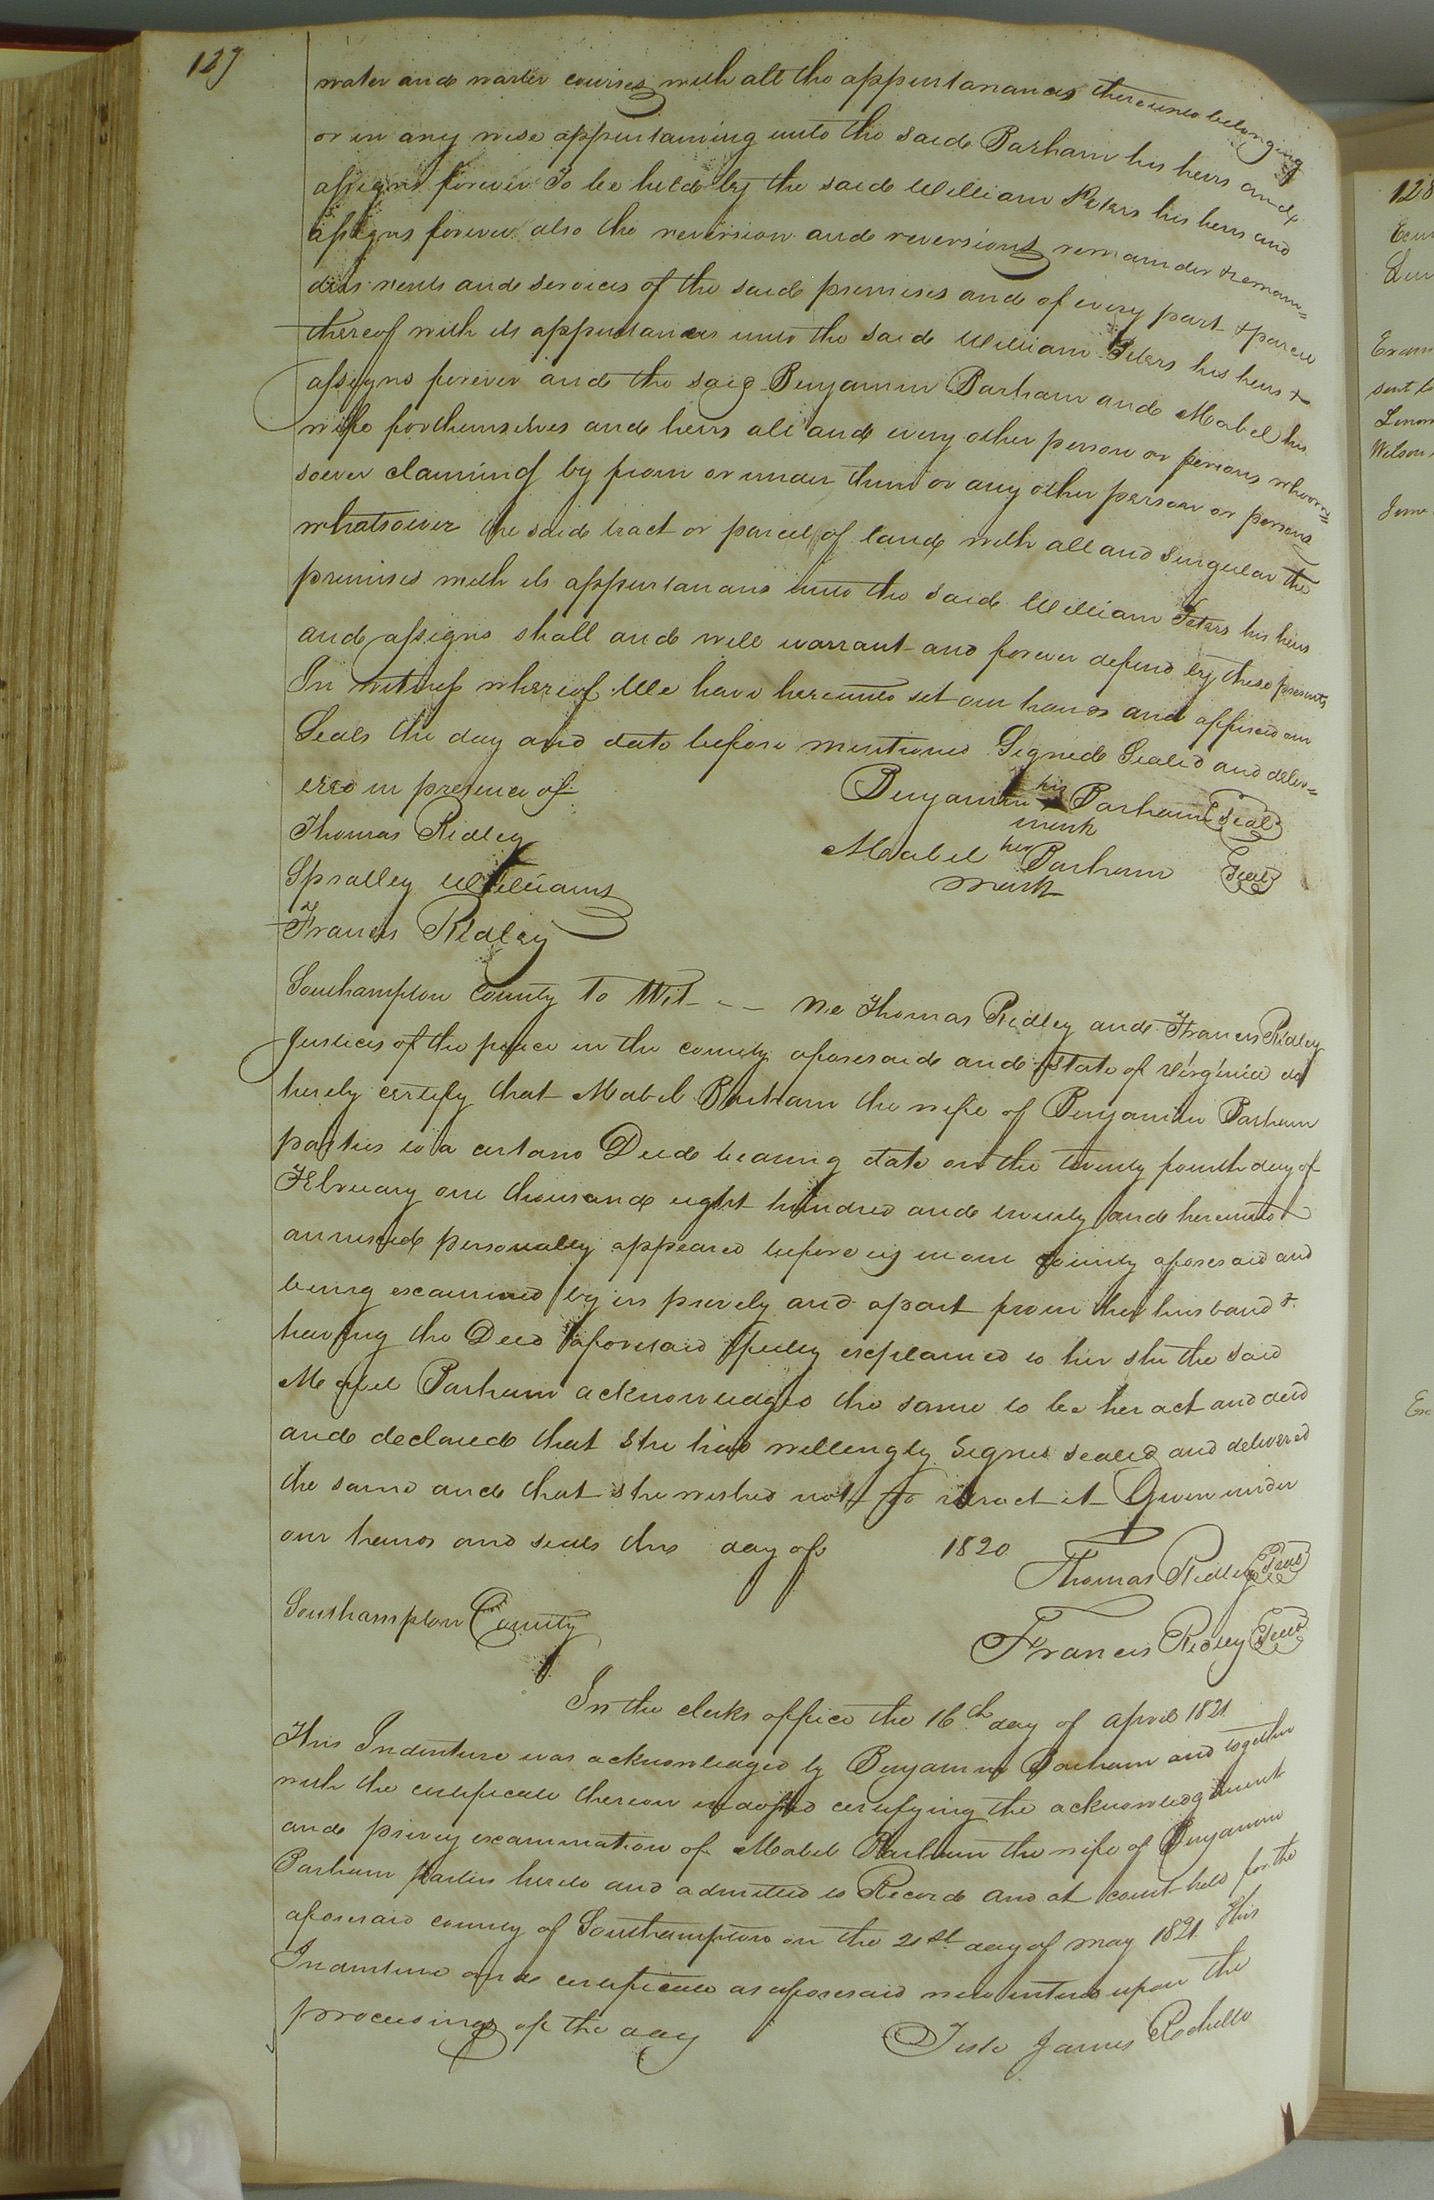 127
water and water courses with all the appurtanances thereunto belonging
or in any wise appurtaining unto the said Parham his heirs and
assigns forever To be held by the said William Peters his heirs and
assigns forever also the reversion and reversions remainder & remain=
ders rents and services of the said premises and of every part & parcel
thereof with its appurtances unto the said William Peters his heirs &
assigns forever and the said Benjamin Parham and Mabel his
wife for themselves and heirs all and every other person or persons whoom=
soever claiming by from or under them or any other person or persons
whatsoever the said tract or parcel of land with all and singular the
premises with its appurtanans unto the said William Peters his heirs
and assigns shall and will warrant and forever defend by these presents
In witness whereof We have hereunto set our hands and affixed our
Seals the day and date before mentioned Signed Sealed and deliv=
ered in presence of
Benjamin his Parham Seal
mark
Thomas Ridley
Mabel her Parham Seal
mark
Spralley Williams
Francis Ridley
Southampton County To Wit - - We Thomas Ridley and Francis Ridley
Justices of the peace in the county aforesaid and State of Virginia do
hereby certify that Mabel Parham the wife of Benjamin Parham
parties to a certano Deed bearing date on the twenty fourth day of
February one thousand eight hundred and twenty and hereunto
annexed personally appeared before us in our county aforesaid and
being examined by us privily and apart from her husband &
having the Deed aforesaid fully explained to her she the said
Mabel Parham acknowledged the same to be her act and deed
and declared that She had willingly Signed sealed and delivered
the same and that she wished not to retract it Given under
our hands and seals this day of 1820
Thomas Ridley Seal
Southampton County
Francis Ridley Seal
In the clerks office the 16th day of april 1821
This Indenture was acknowledged by Benjamin Parham and together
with the certificate thereon endorsed certifying the acknowledgement
and privy examination of Mabel Parham the wife of Benjamin
Parham parties hereto and admitted to Record and at court held for the
aforesaid county of Southampton on the 21st day of may 1821 This
Indenture and certificate as aforesaid was entered upon the
proceedings of the day
Teste James Rochelle
128
Exam
sent to
Wilson
June